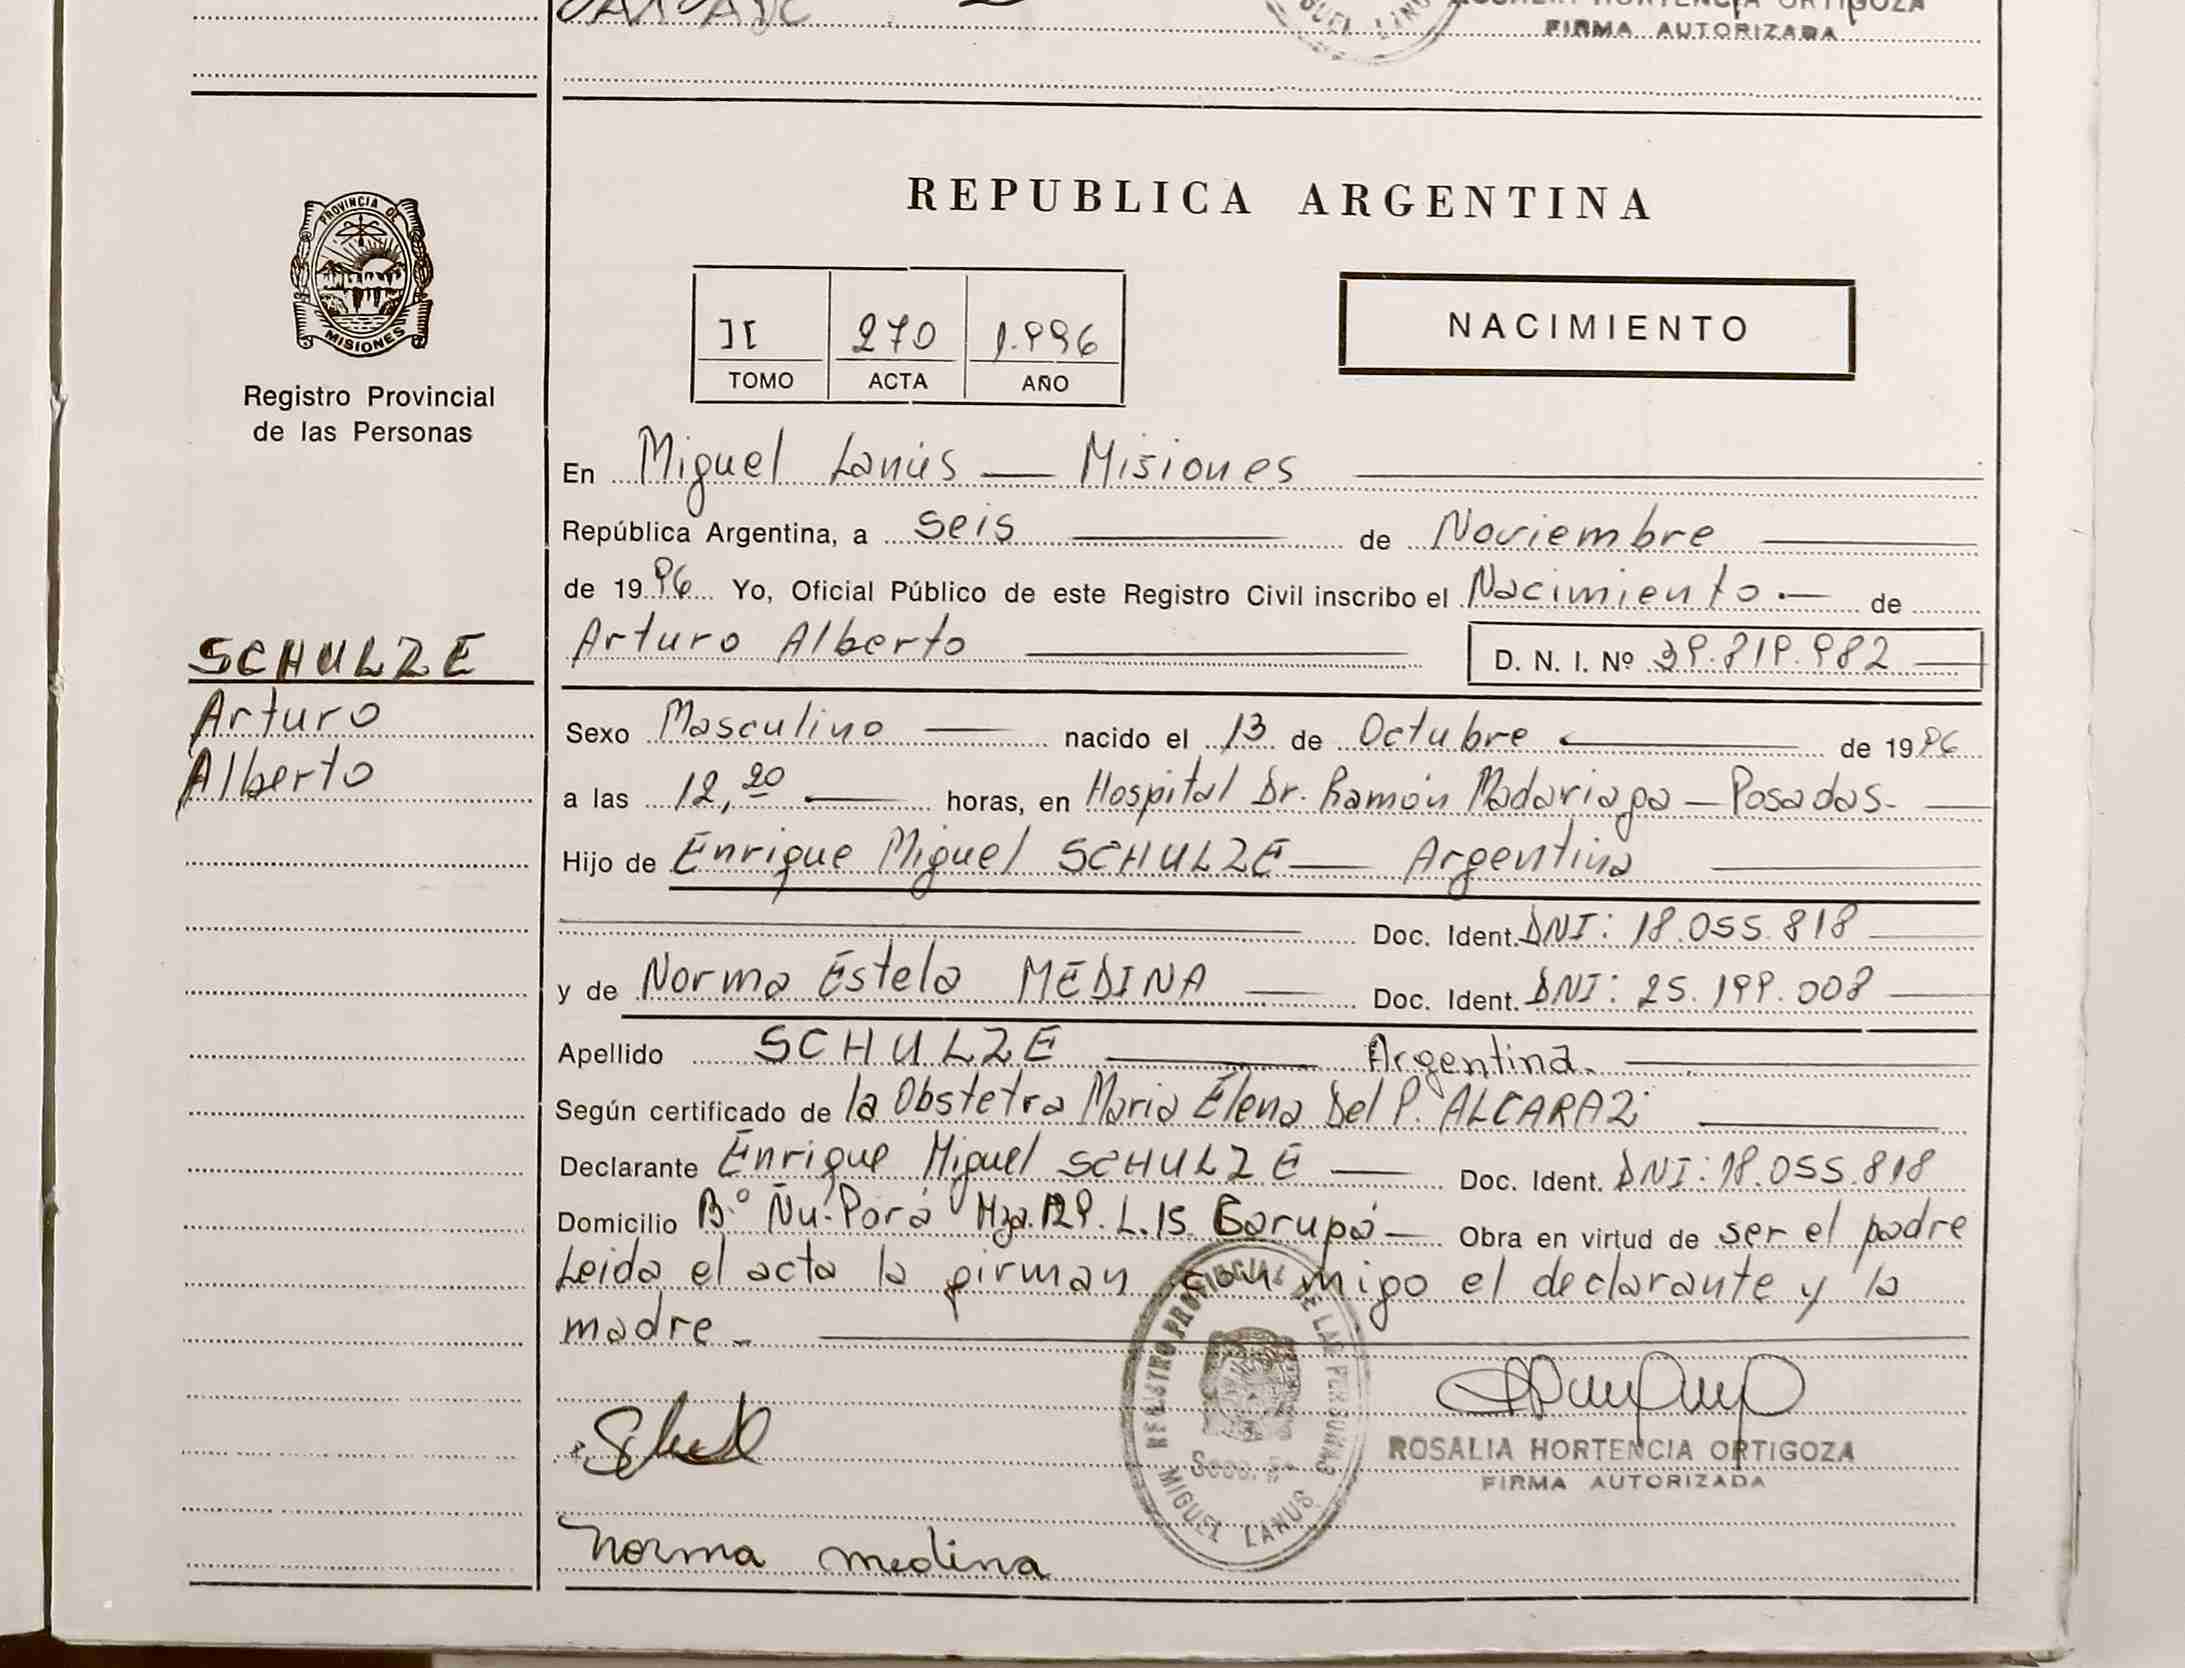 FIRMA AUTORIZADA
PROVINCIA DE
MISIONES
Registro Provincial
de las Personas
SCHULZE
Arturo
Alberto
REPUBLICA ARGENTINA
II 270 1.996
TOMO ACTA AÑO
NACIMIENTO
En Miguel Lanús — Misiones
República Argentina, a seis de Noviembre
de 1996 Yo, Oficial Público de este Registro Civil inscribo el Nacimiento.— de
Arturo Alberto D. N. I. Nº 39.819.982
Sexo Masculino nacido el 13 de Octubre de 1996
a las 12,20 horas, en Hospital Dr. Ramón Madariaga — Posadas.
Hijo de Enrique Miguel SCHULZE — Argentina
Doc. Ident. DNI: 18.055.818
y de Norma Estela MEDINA Doc. Ident. DNI: 25.199.008
Apellido SCHULZE Argentina.
Según certificado de la Obstetra Maria Elena Del P. ALCARAZ
Declarante Enrique Miguel SCHULZE Doc. Ident. DNI: 18.055.818
Domicilio B.º Ñu-Porá Hza. 129. L.15 Garupá — Obra en virtud de ser el padre
Leida el acta la firman con migo el declarante y la
madre
REGISTRO PROVINCIAL DE LAS PERSONAS
MIGUEL LANUS
ROSALIA HORTENCIA ORTIGOZA
FIRMA AUTORIZADA
Norma medina